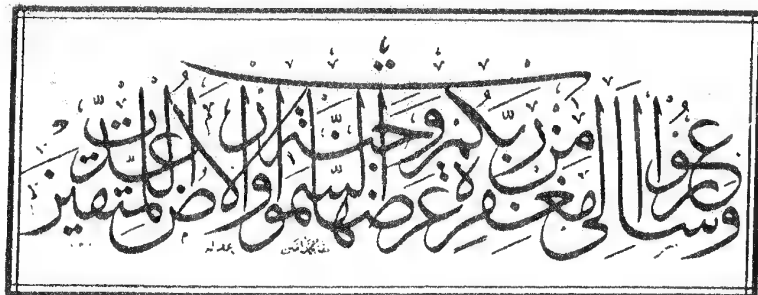 وسارعوا إلى مغفرة من ربكم وجنة عرضها السموات والأرض أعدت للمتقين